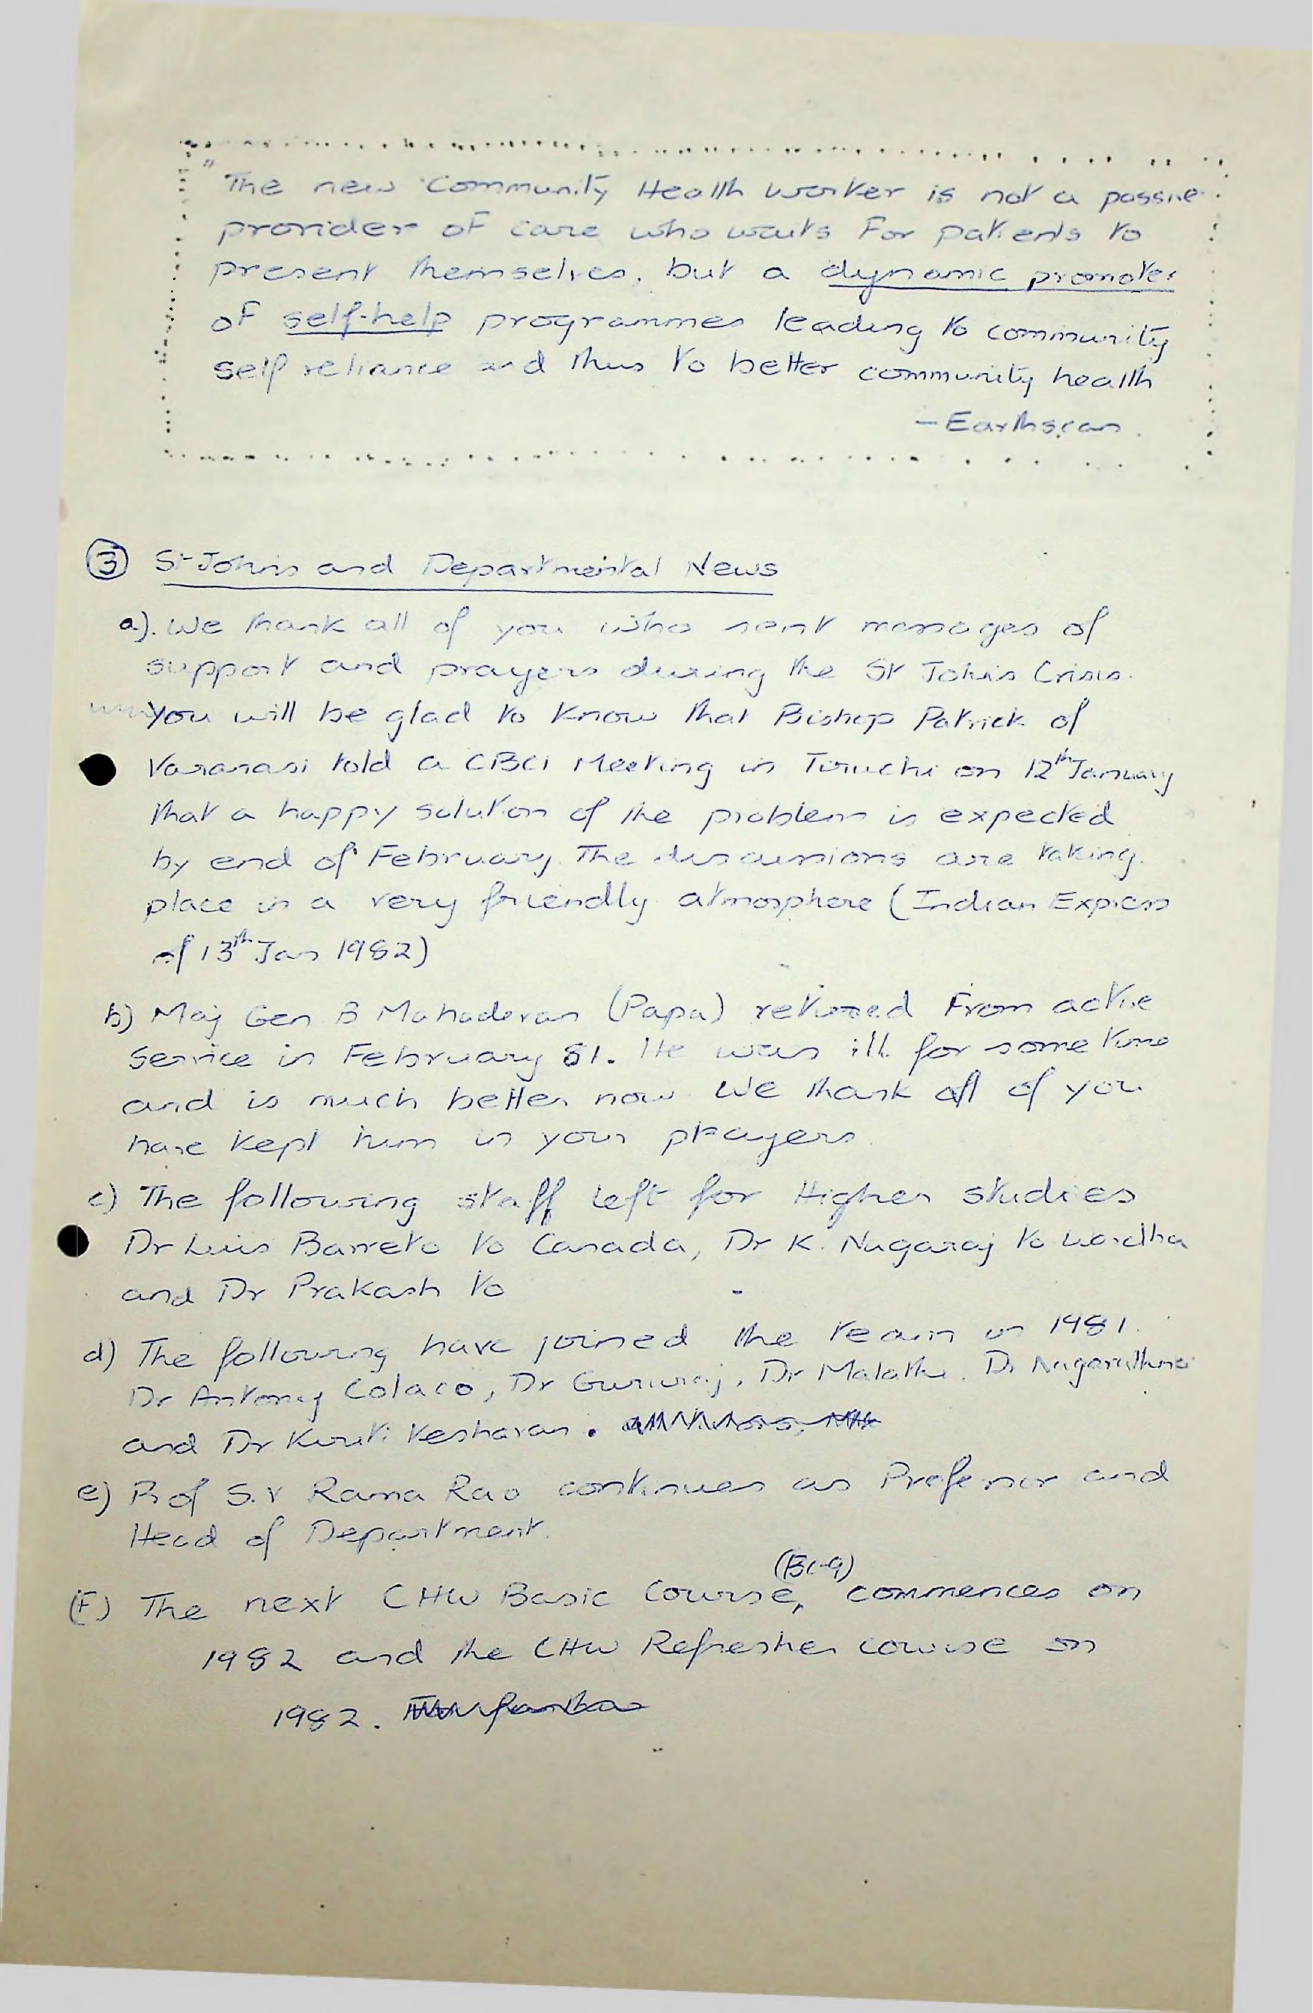 "The new Community Health Worker is not a passive
provider of care who waits for patients to
present themselves, but a dynamic promoter
of self-help programmes leading to community
self reliance and thus to better community health
- Earthscan.
3 St Johns and Departmental News
a). We thank all of you who sent messages of
support and prayers during the St John's Crisis.
You will be glad to know that Bishop Patrick of
Varanasi told a CBCI Meeting in Tiruchi on 12th January
that a happy solution of the problem is expected
by end of February. The discussions are taking
place in a very friendly atmosphere (Indian Express
of 13th Jan 1982)
b) Maj Gen B Mahadevan (Papa) retired from active
Service in February 81. He was ill for some time
and is much better now. We thank all of you
have kept him in your prayers
c) The following staff left for Higher studies
Dr Luis Barreto to Canada, Dr K. Nagaraj to Wardha
and Dr Prakash to
d) The following have joined the team in 1981.
Dr Antony Colaco, Dr Gururaj, Dr Malathi, Dr Nagarathna
and Dr Kirti Keshavan.
e) Prof S.V Rama Rao continues as Professor and
Head of Department.
(F) The next CHW Basic Course, (BC-9) commences on
1982 and the CHW Refresher course on
1982.